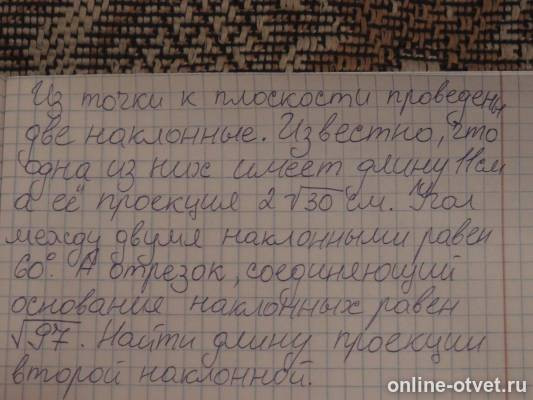 Из точки к плоскости проведены
две наклонные. Известно, что
одна из них имеет длину 11см
а её проекция 2√30 см. Угол
между двумя наклонными равен
60°. А отрезок, соединяющий
основания наклонных равен
√97. Найти длину проекции
второй наклонной.
online-otvet.ru